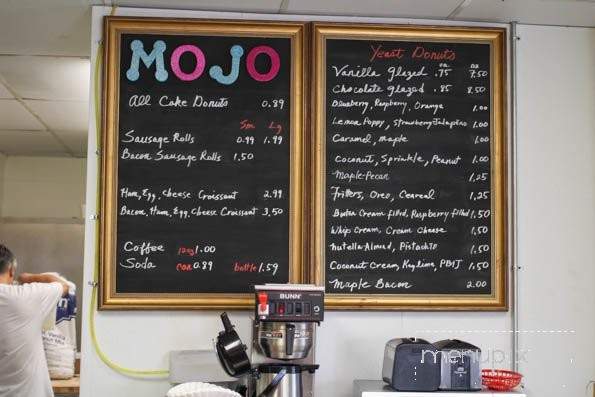 MOJO
All Cake Donuts 0.89
Sm Lg
Sausage Rolls 0.99 1.99
Bacon Sausage Rolls 1.50
Ham, Egg, Cheese Croissant 2.99
Bacon, Ham, Egg, Cheese Croissant 3.50
Coffee 1.00
Soda can 0.89 bottle 1.59
Yeast Donuts
ea. dz
Vanilla glazed .75 7.50
Chocolate glazed .85 8.50
Blueberry, Raspberry, Orange 1.00
Lemon Poppy, Strawberry Jalapeño 1.00
Caramel, maple 1.00
Coconut, Sprinkle, Peanut 1.00
Maple-Pecan 1.25
Fritters, Oreo, Cereal 1.25
Cream filled, Raspberry filled 1.50
Whip Cream, Cream Cheese 1.50
Nutella Almond, Pistachio 1.50
Coconut Cream, Key lime, PB&J 1.50
Maple Bacon 2.00
BUNN
menupix